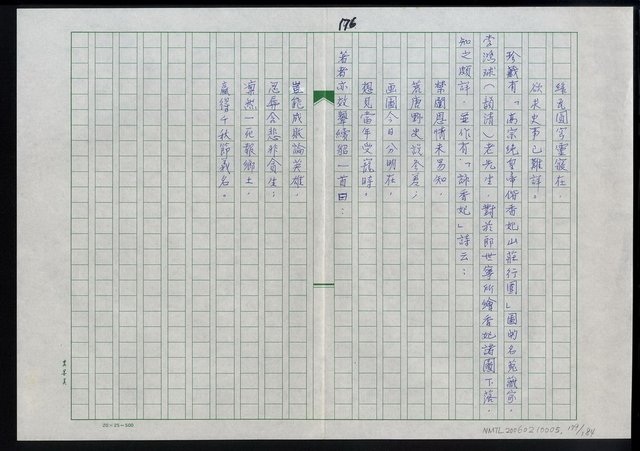 176
綠瓦圓穹靈寢在,
欲求史事已難詳。
珍藏有「高宗純皇帝偕香妃山莊行圍」圖的名苑藏家,
李鴻球(韻清)老先生,對於郎世寧所繪香妃諸圖下落,
知之頗詳,並作有「詠香妃」詩云:
禁闈恩情未易知,
荒唐野史說參差;
画圖今日分明在,
想見當年受寵時。
著者亦效顰續貂一首曰:
豈能成敗論英雄,
忍辱含悲非貪生;
凜然一死報鄉土,
贏得千秋節義名。
20×25=500
NMTL20060210005, 179/184